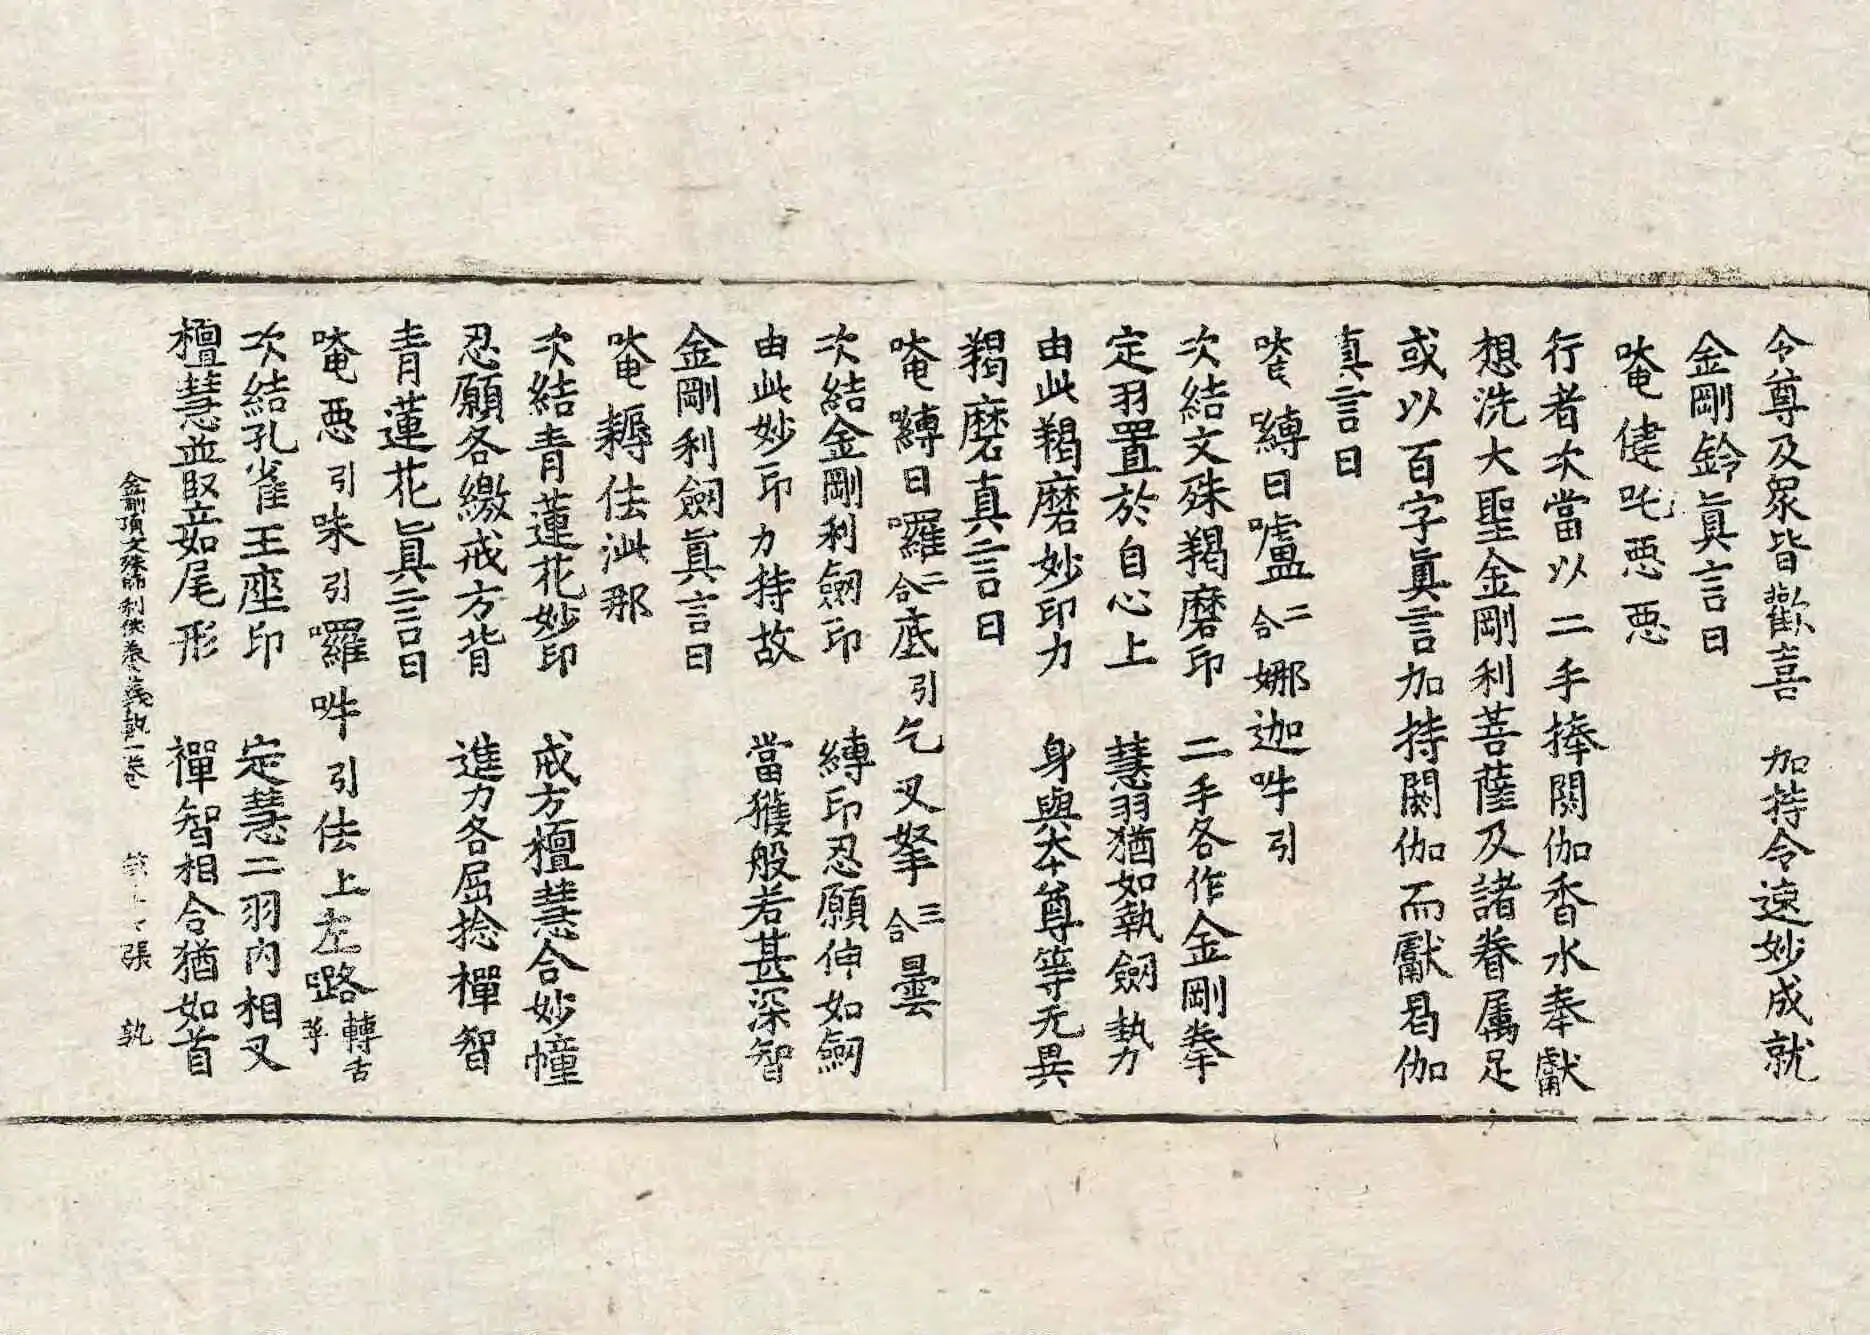 令尊及眾皆歡喜 加持令速妙成就
金剛鈴眞言曰
唵健吒惡惡
行者次當以二手捧閼伽香水奉獻
想洗大聖金剛利菩薩及諸眷属足
或以百字眞言加持閼伽而獻曷伽
真言曰
唵嚩日嚧二合娜迦吽引
次結文殊羯磨印 二手各作金剛拳
定羽置於自心上 慧羽猶如執劒勢
由此羯磨妙印力 身與本尊等无異
羯磨真言曰
唵嚩日囉二合底引乞叉拏三合曇
次結金剛利劒印 縛印忍願伸如劒
由此妙印力持故 當獲般若甚深智
金剛利劒眞言曰
唵耨佉泚那
次結青蓮花妙印 戒方檀慧合妙幢
忍願各繳戒方背 進力各屈捻禪智
青蓮花眞言曰
唵惡引味引囉吽引佉上左𡀔轉舌
次結孔雀王座印 定慧二羽内相叉
檀慧並竪如尾形 禪智相合猶如首
金剛頂文殊師利 一卷 張